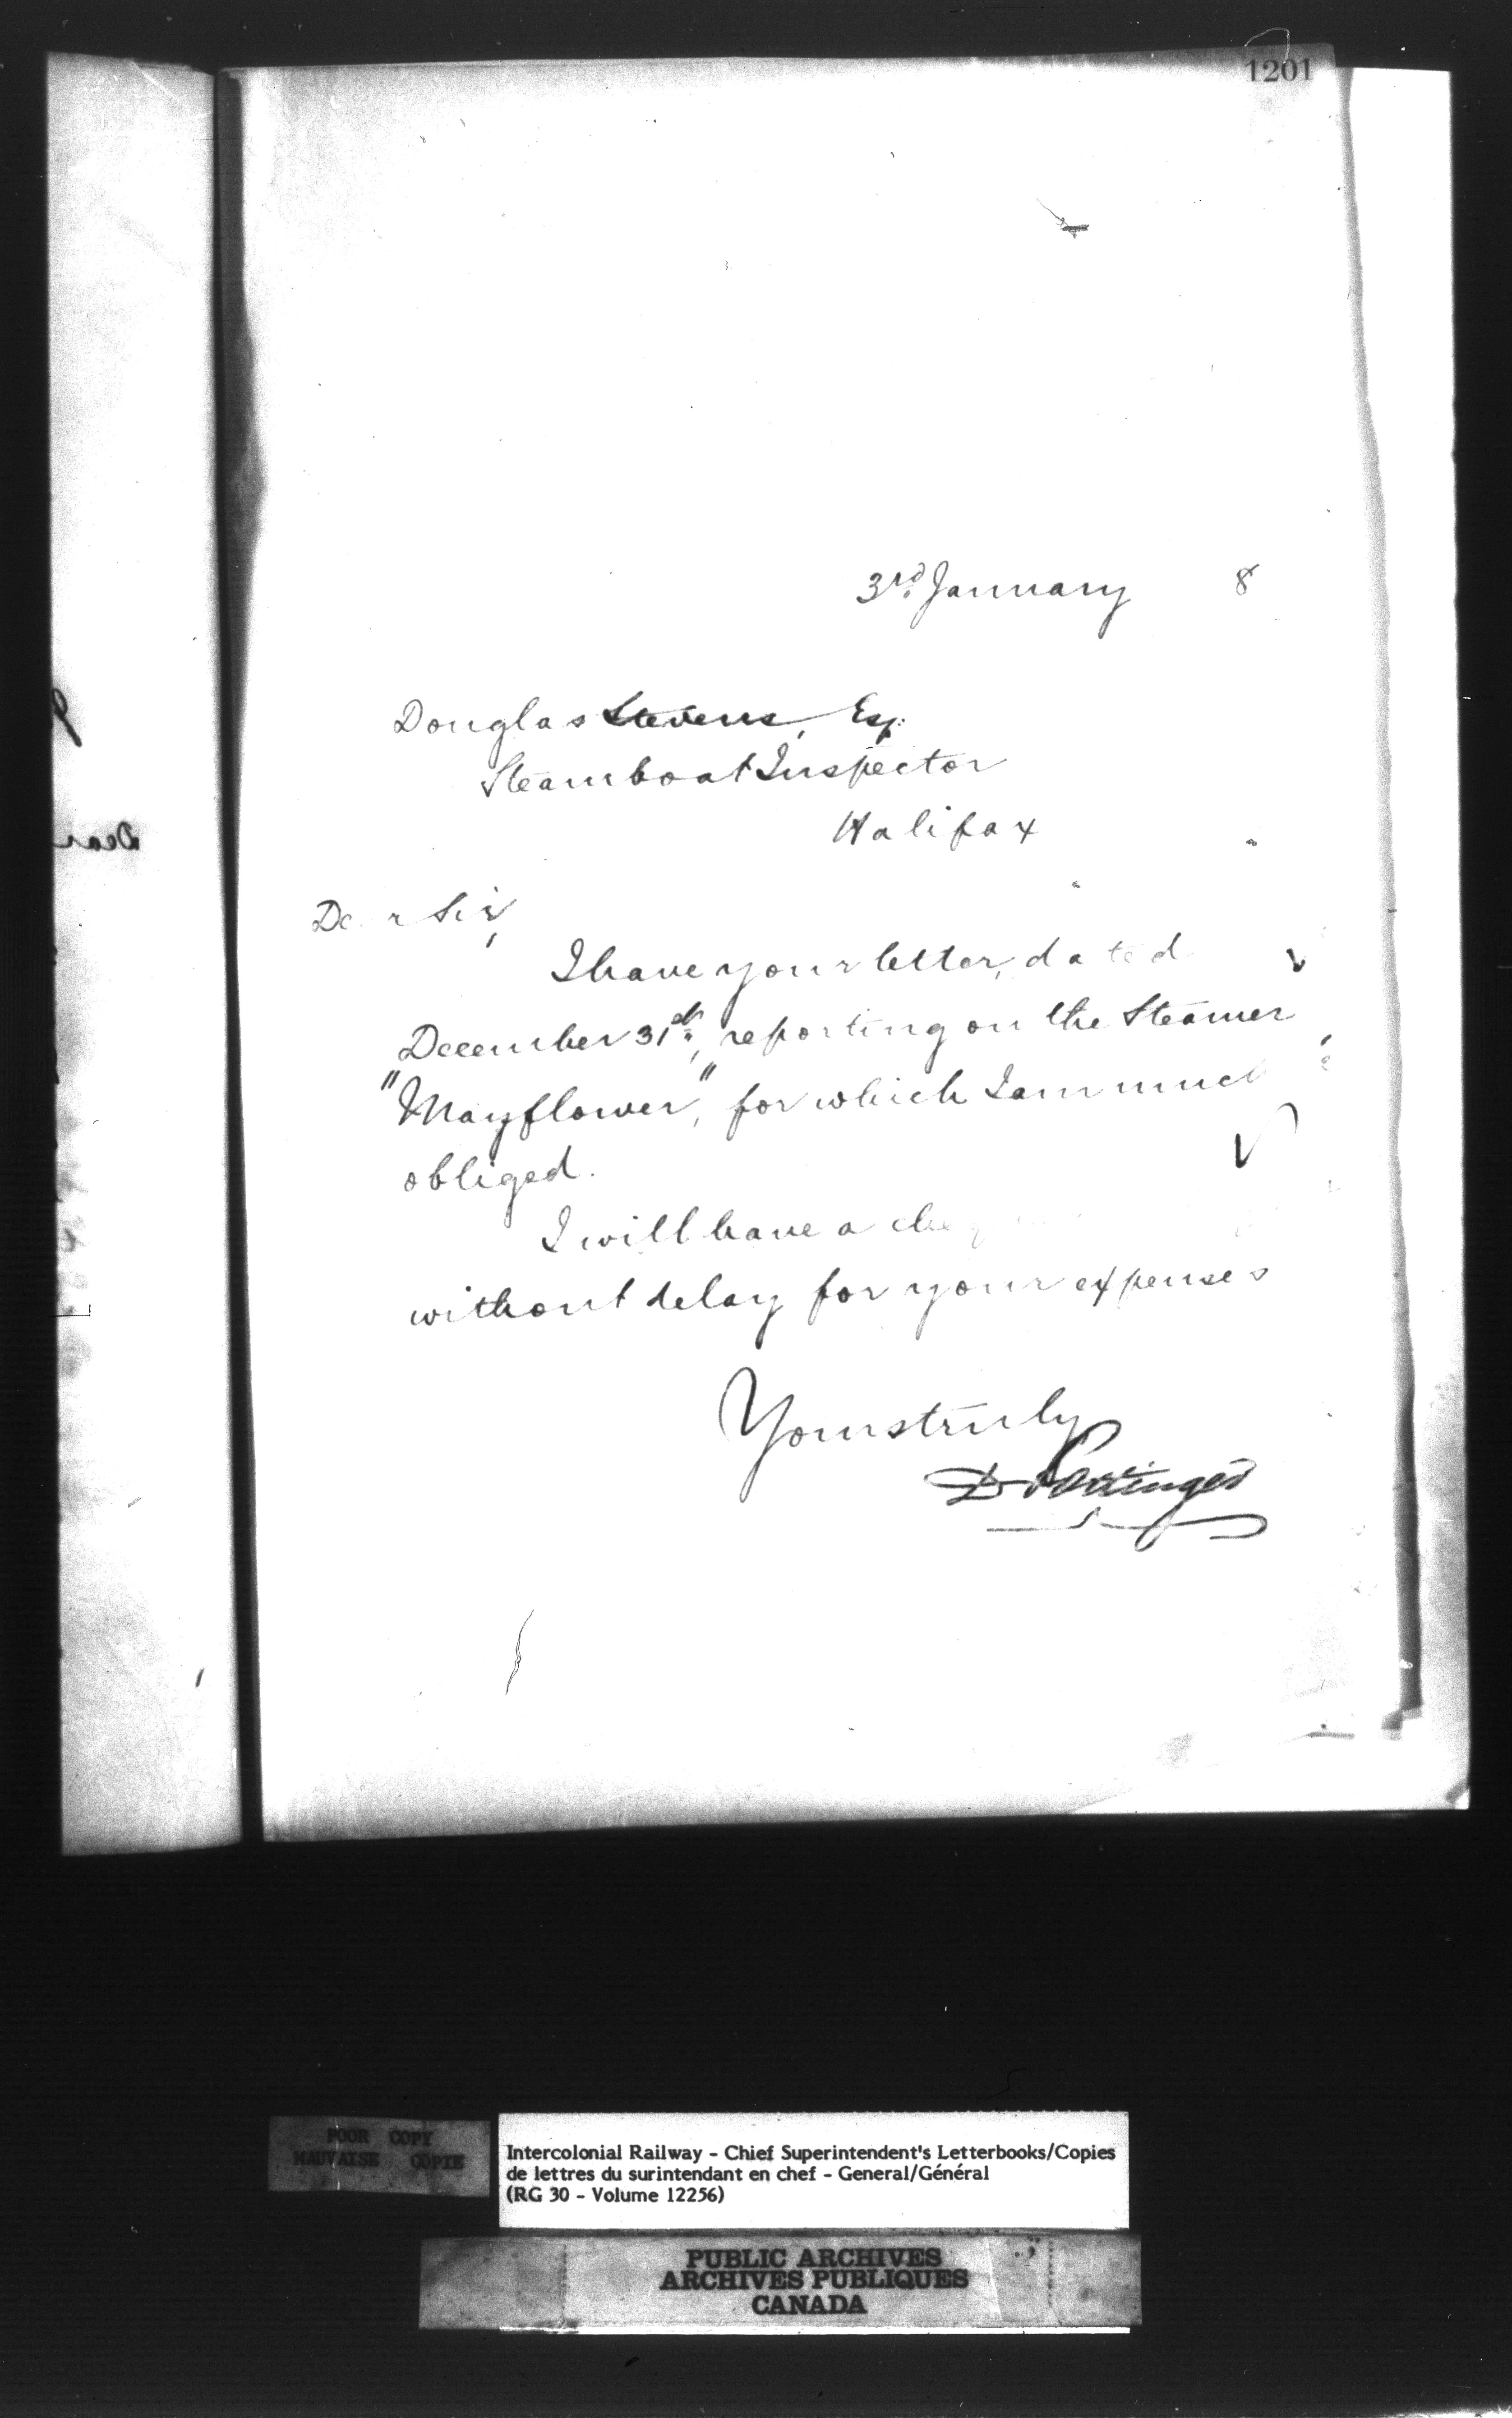 1201
3rd. January 8
Douglas Stevens, Esq.
Steamboat Inspector
Halifax
Dear Sir,
I have your letter, dated
December 31st, reporting on the Steamer
"Mayflower", for which I am much
obliged.
I will have a
without delay for your expenses
Yours truly
D. Pottinger
Dear
POOR COPY
MAUVAISE COPIE
Intercolonial Railway - Chief Superintendent's Letterbooks/Copies
de lettres du surintendant en chef - General/Général
(RG 30 - Volume 12256)
PUBLIC ARCHIVES
ARCHIVES PUBLIQUES
CANADA